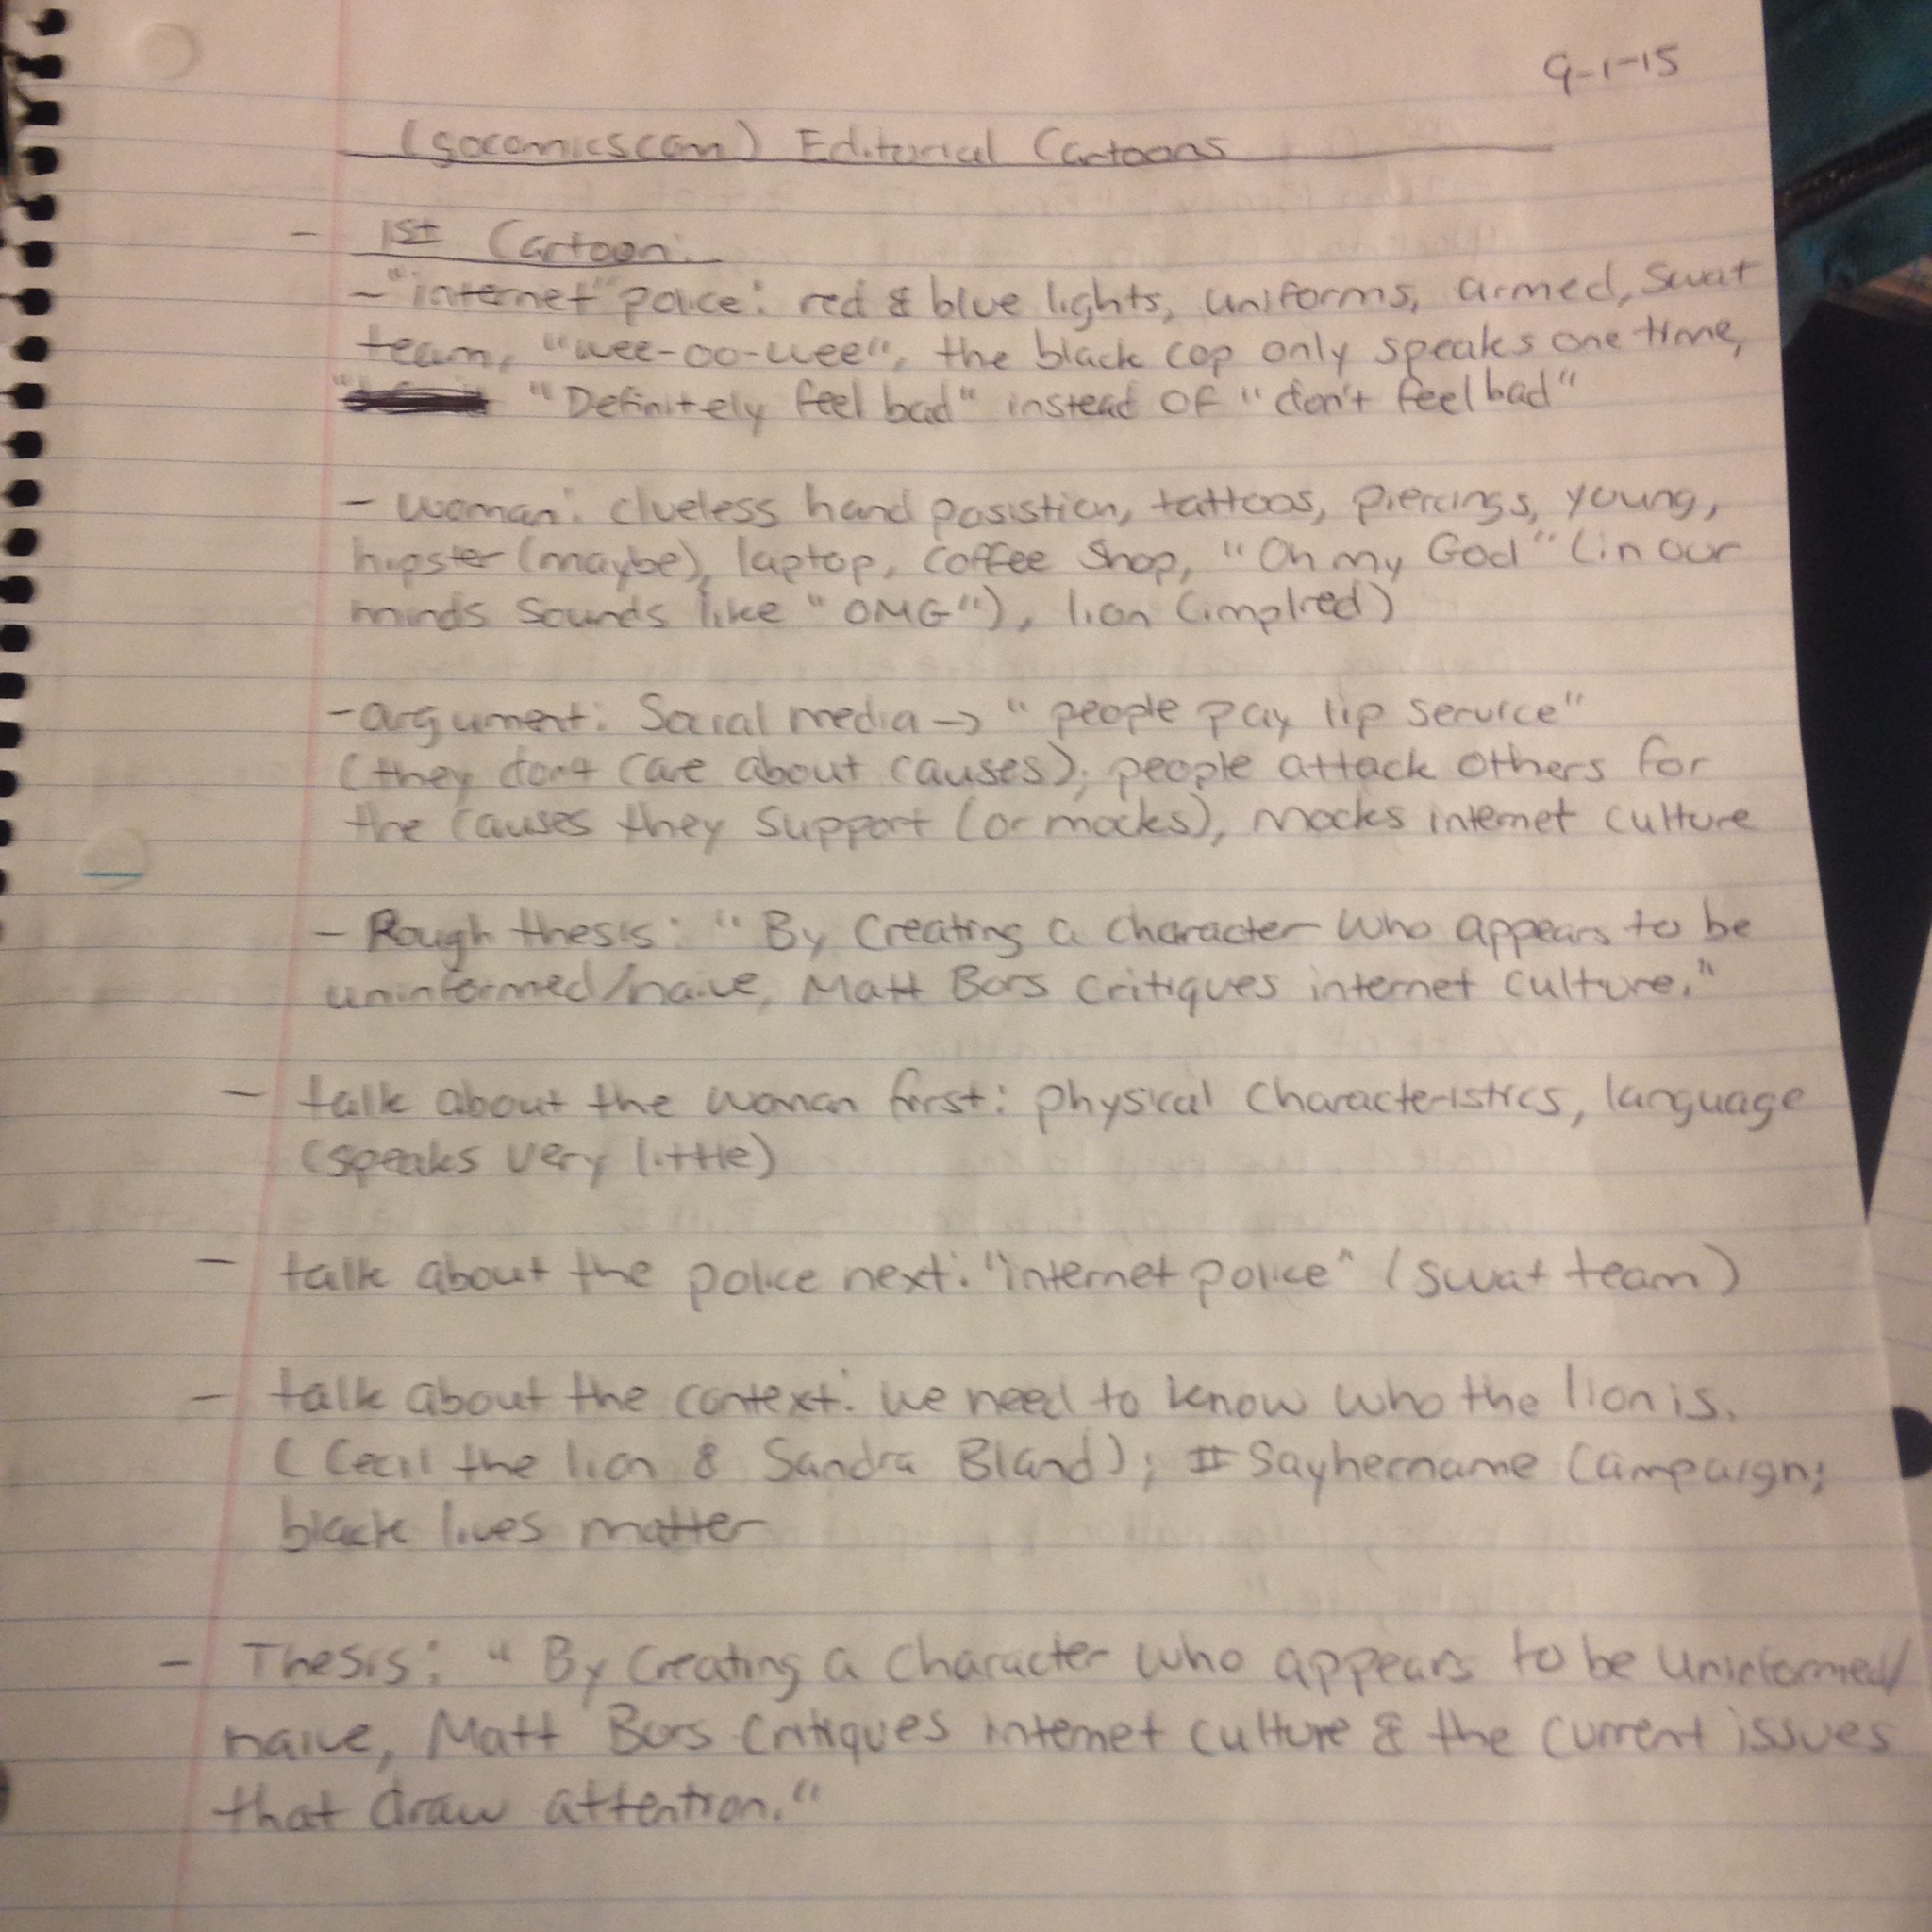 9-1-15
(gocomicscom) Editorial Cartoons
- 1st Cartoon:
- "internet" police: red & blue lights, uniforms, armed, swat
team, "wee-oo-wee", the black cop only speaks one time,
"Definitely feel bad" instead of "don't feel bad"
- woman: clueless hand posistion, tattoos, piercings, young,
hipster (maybe), laptop, coffee shop, "Oh my God" (in our
minds sounds like "OMG"), lion (implied)
- argument: Social media → "people pay lip service"
(they dont care about causes); people attack others for
the causes they support (or mocks), mocks internet culture
- Rough thesis: "By creating a character who appears to be
uninformed/naive, Matt Bors critiques internet culture."
- talk about the woman first: physical characteristics, language
(speaks very little)
- talk about the police next: "internet police" (swat team)
- talk about the context: we need to know who the lion is.
(Cecil the lion & Sandra Bland); #Sayhername Campaign;
black lives matter
- Thesis: "By creating a character who appears to be uninformed/
naive, Matt Bors critiques internet culture & the current issues
that draw attention."